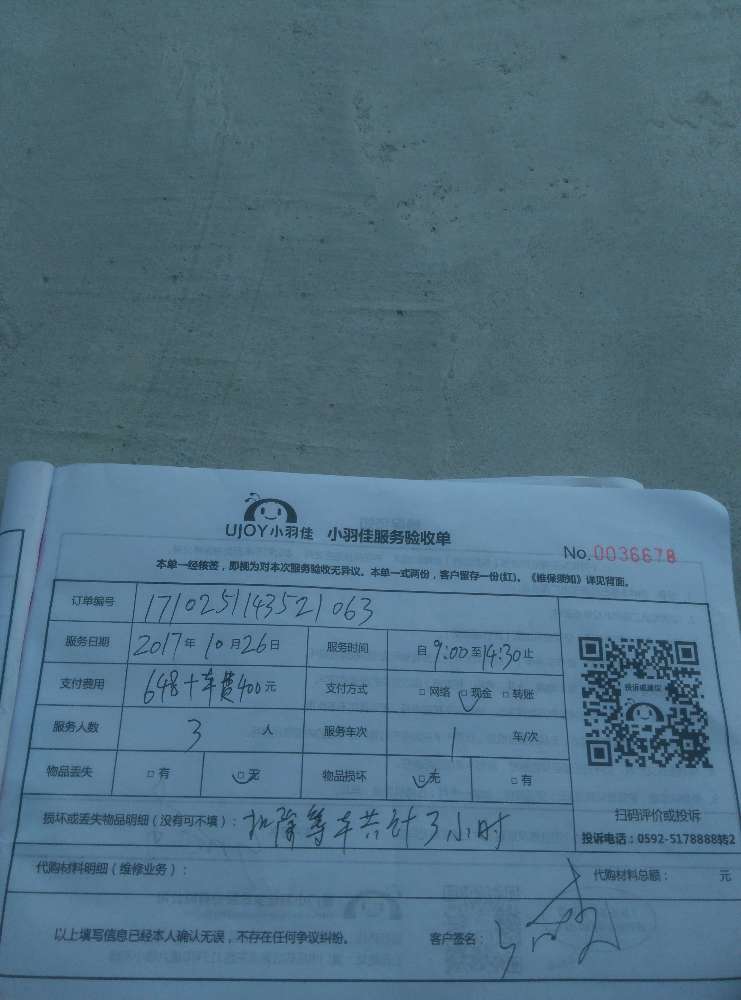 UJOY小羽佳 小羽佳服务验收单
No.0036678
本单一经核签，即视为对本次服务验收无异议。本单一式两份，客户留存一份(红)。《维保须知》详见背面。
订单编号 1710251143521063
服务日期 2017年10月26日 服务时间 自9:00至14:30止
支付费用 648+车费400元 支付方式 □网络 □现金 □转账
服务人数 3人 服务车次 1车/次
物品丢失 □有 □无 物品损坏 □无 □有
投诉或建议
扫码评价或投诉
损坏或丢失物品明细（没有可不填）：扣除等车共计3小时
投诉电话：0592-5178888转2
代购材料明细（维修业务）： 代购材料总额： 元
以上填写信息已经本人确认无误，不存在任何争议纠纷。 客户签名：